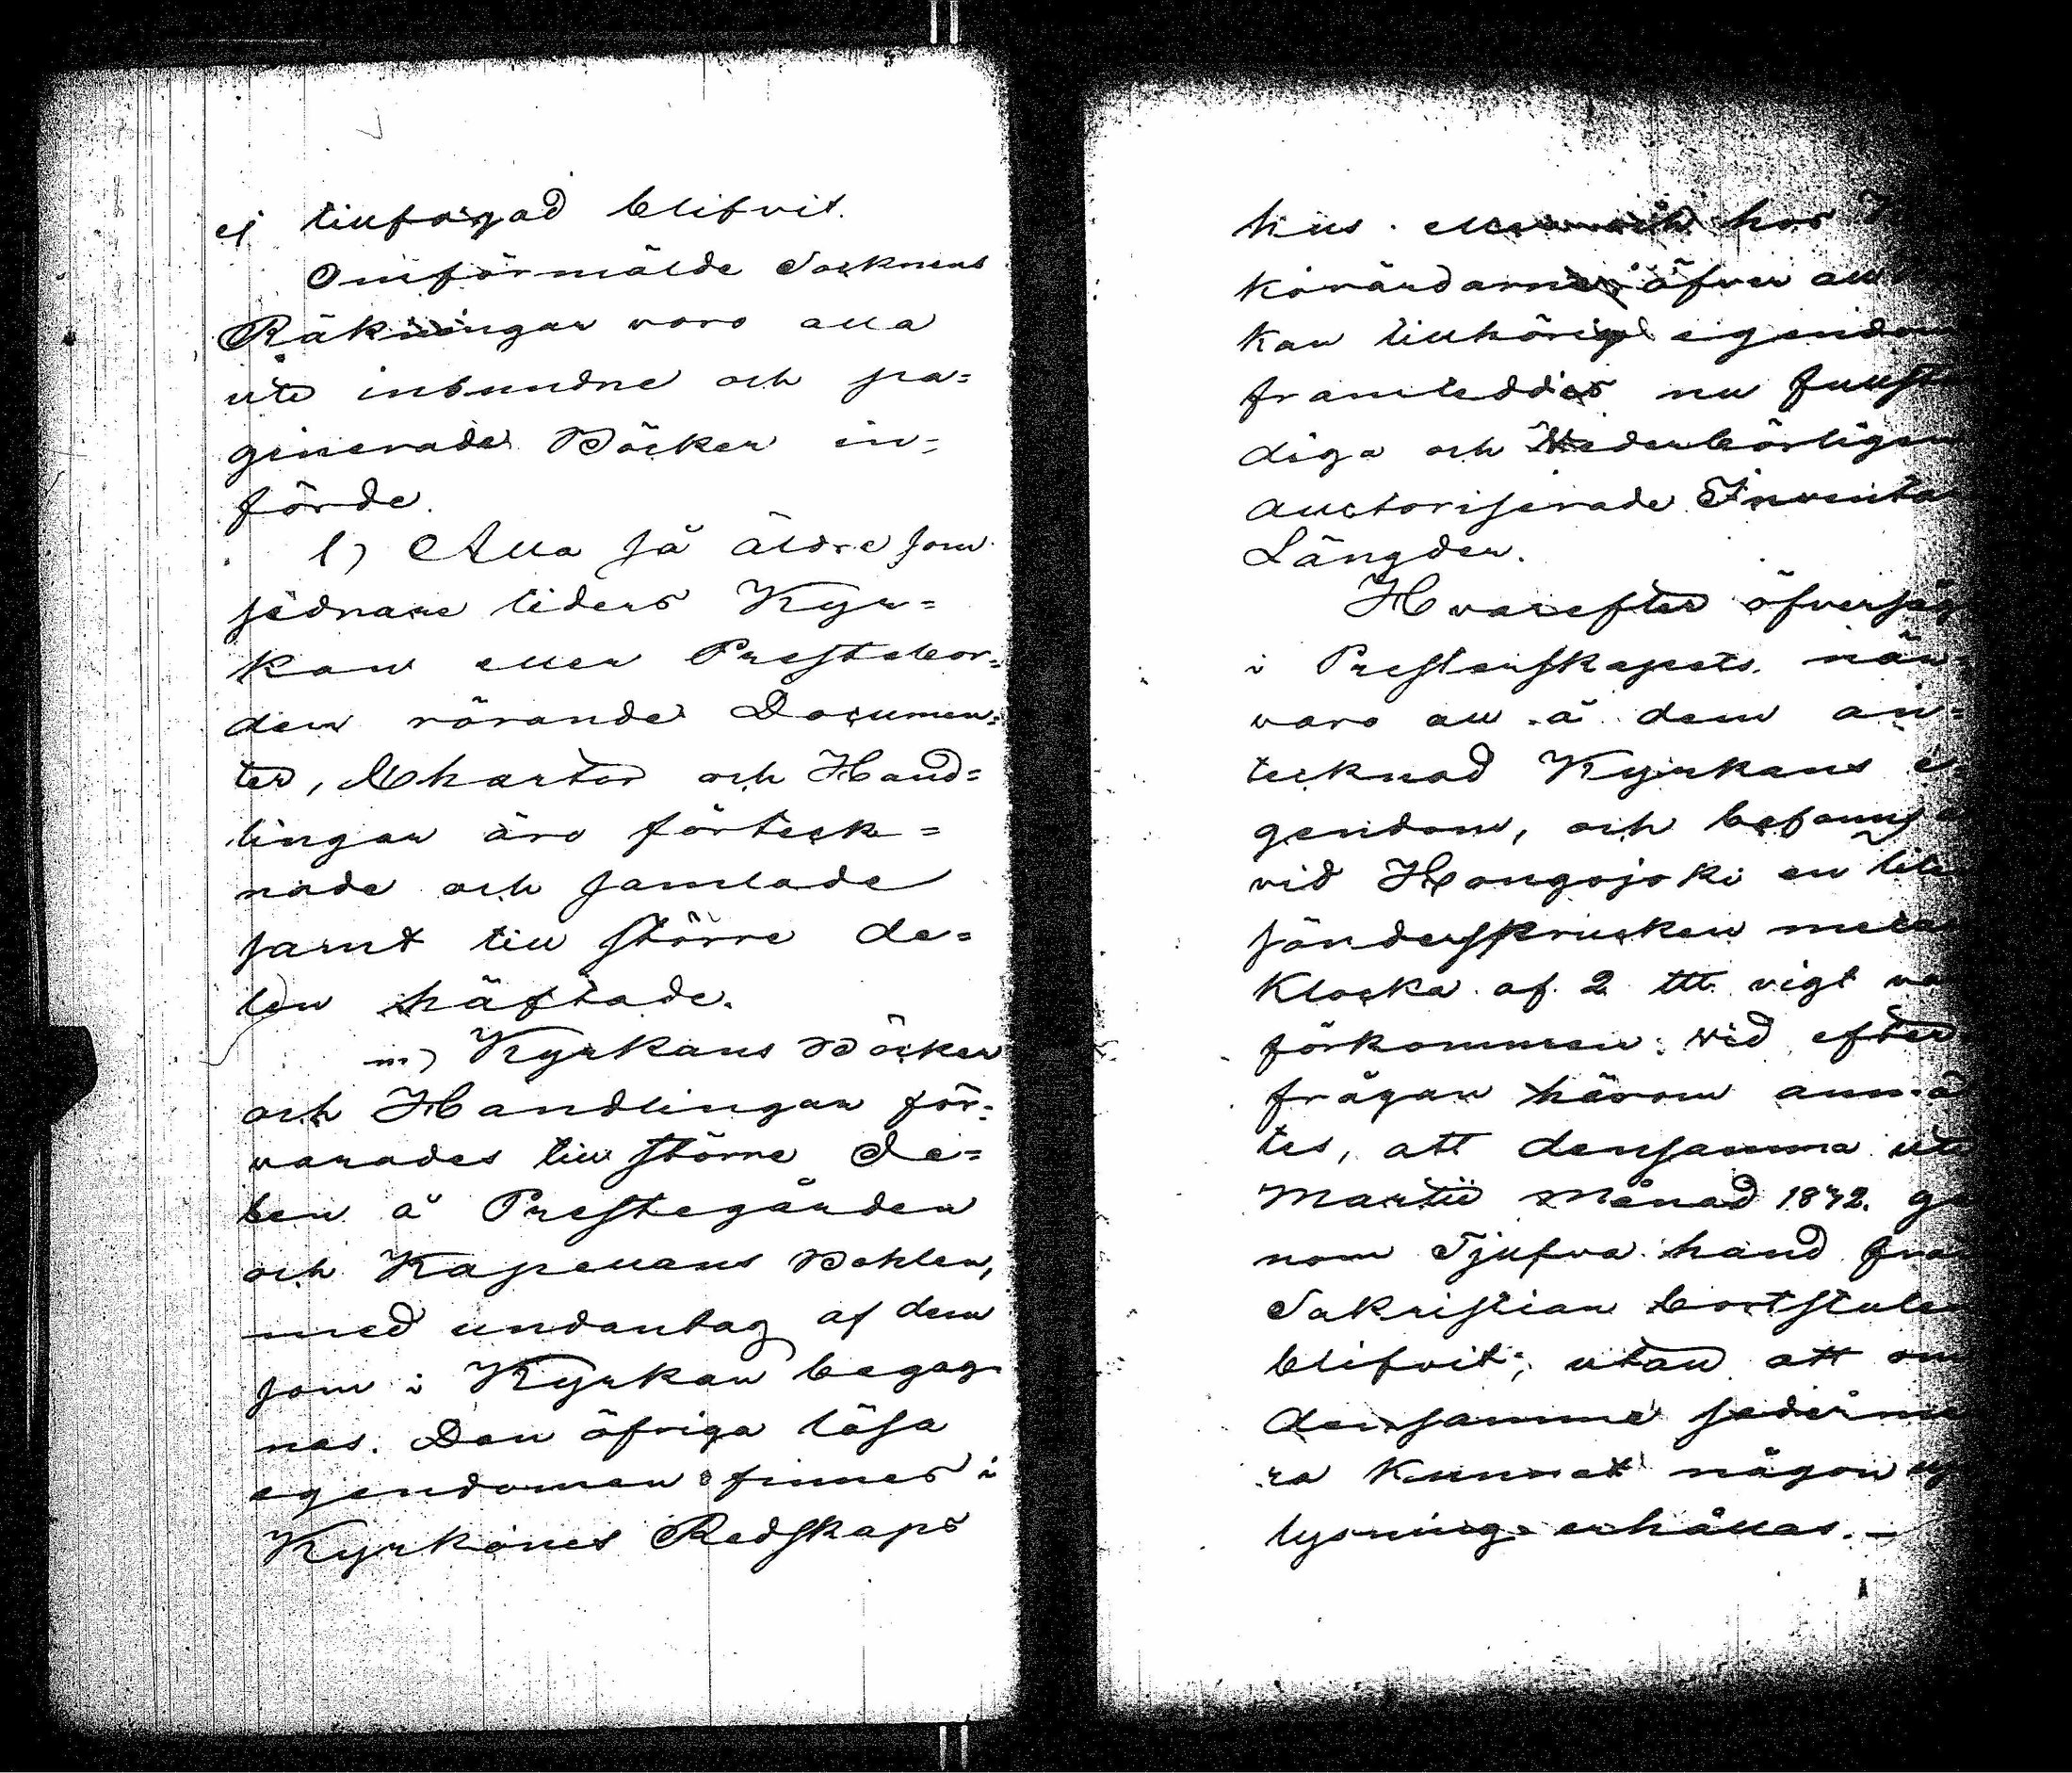 ej tillfogad blifvit.
Omförmälde Socknens
Räkningar voro alla
uti inbundne och pa=
ginerade Böcker in=
förde.
l) Alla så äldre som
sednare tiders Kyr=
kan eller Prestebor=
den rörande Documen=
ter, Chartor och Hand=
lingar äro förteck=
nade och samlade
samt till större de=
len häftade.
m) Kyrkans Böcker
och Handlingar för=
varades till större De=
len å Prestegården
och Kapellans Bohlen,
med undantag af dem
som i Kyrkan begag
nas. Den öfriga lösa
egendomen finnes i
Kyrkones Redskaps
hus. hos
kovärdarne öfver all
kan tillhörig egendom
framteddes nu fullst
diga och Wederbörligen
auctoriserade Inventa
Längder.
Hvarefter öfversåg
i Presterskapets när=
varo all å dem an=
tecknad Kyrkans e=
gendom, och befanns
vid Hongojoki en lite
söndersprucken metal
Klocka af 2 ℔ vigt va
förkommen. Vid efter
frågan härom anmä
tes, att densamma uti
Martii Månad 1842. ge
nom Tjufva hand från
Sakristian bortstulen
blifvit; utan att om
densamme sederme
ra kunnat någon up
lysning erhållas. —